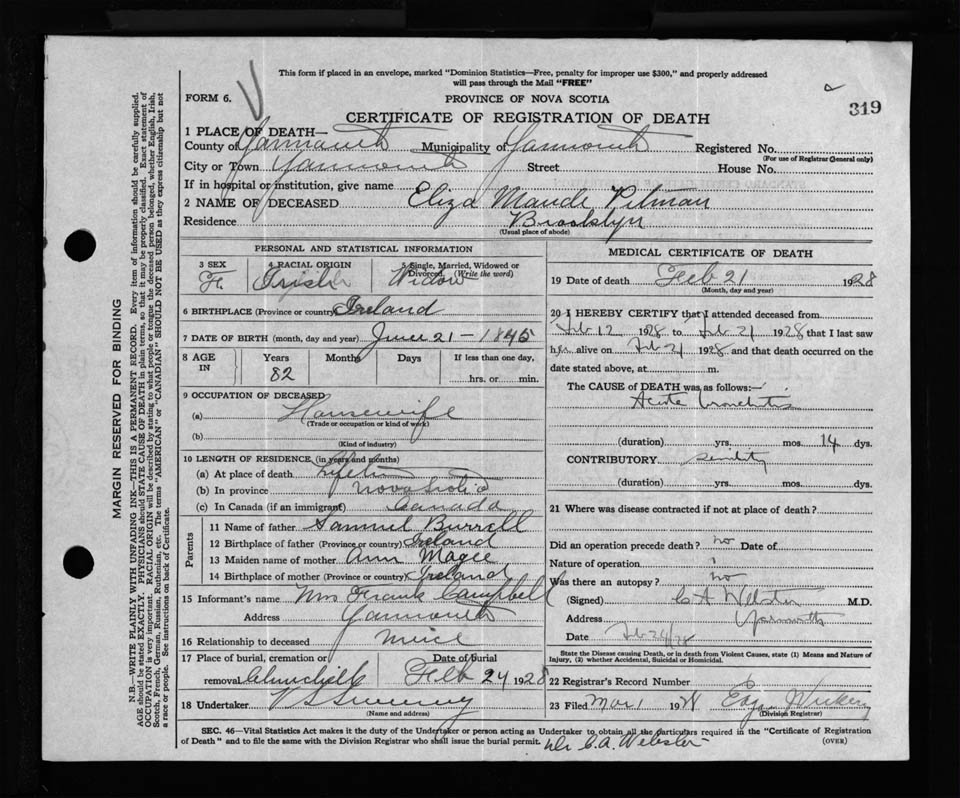 This form if placed in an envelope, marked "Dominion Statistics—Free, penalty for improper use $300," and properly addressed
will pass through the Mail "FREE"
FORM 6. PROVINCE OF NOVA SCOTIA 319
CERTIFICATE OF REGISTRATION OF DEATH
1 PLACE OF DEATH—
County of Yarmouth Municipality of Yarmouth Registered No.
(For use of Registrar General only)
City or Town Yarmouth Street House No.
If in hospital or institution, give name
2 NAME OF DECEASED Eliza Maude Pitman
Residence Brooklyn
(Usual place of abode)
PERSONAL AND STATISTICAL INFORMATION
3 SEX 4 RACIAL ORIGIN 5 Single, Married, Widowed or
Divorced (Write the word)
Fe Irish Widow
6 BIRTHPLACE (Province or country) Ireland
7 DATE OF BIRTH (month, day and year) June 21 - 1845
8 AGE IN Years Months Days If less than one day,
82 hrs. or min.
9 OCCUPATION OF DECEASED
(a) Housewife
(Trade or occupation or kind of work)
(b)
(Kind of industry)
10 LENGTH OF RESIDENCE (in years and months)
(a) At place of death
(b) In province Nova Scotia
(c) In Canada (if an immigrant) Canada
Parents
11 Name of father Samuel Burrell
12 Birthplace of father (Province or country) Ireland
13 Maiden name of mother Ann Magee
14 Birthplace of mother (Province or country) Ireland
15 Informant's name Mrs Frank Campbell
Address Yarmouth
16 Relationship to deceased niece
17 Place of burial, cremation or Date of burial
removal Feb 24 1928
18 Undertaker V S Sweeny
(Name and address)
MEDICAL CERTIFICATE OF DEATH
19 Date of death Feb 21 1928
(Month, day and year)
20 I HEREBY CERTIFY that I attended deceased from
Feb 12 1928 to Feb 21 1928 that I last saw
her alive on Feb 21 1928 and that death occurred on the
date stated above, at m.
The CAUSE of DEATH was as follows:—
Acute bronchitis
(duration) yrs. mos. 14 dys.
CONTRIBUTORY senility
(duration) yrs. mos. dys.
21 Where was disease contracted if not at place of death?
Did an operation precede death? no Date of
Nature of operation
Was there an autopsy? no
(Signed) C A Webster M.D.
Address Yarmouth
Date Feb 24/28
State the Disease causing Death, or in death from Violent Causes, state (1) Means and Nature of
Injury, (2) whether Accidental, Suicidal or Homicidal.
22 Registrar's Record Number
23 Filed Mar 1 1928
(Division Registrar)
SEC. 46—Vital Statistics Act makes it the duty of the Undertaker or person acting as Undertaker to obtain all the particulars required in the "Certificate of Registration
of Death" and to file the same with the Division Registrar who shall issue the burial permit. (OVER)
Dr C.A. Webster
MARGIN RESERVED FOR BINDING
N.B.—WRITE PLAINLY WITH UNFADING INK—THIS IS A PERMANENT RECORD. Every item of information should be carefully supplied.
AGE should be stated EXACTLY. PHYSICIANS should STATE CAUSE OF DEATH in plain terms, so that it may be properly classified. Exact statement of
OCCUPATION is very important. RACIAL ORIGIN will be described by stating to what people or tongue the deceased person belonged, whether English, Irish,
Scotch, French, German, Russian, Ruthenian, etc. The terms "AMERICAN" or "CANADIAN" SHOULD NOT BE USED as they express citizenship but not
a race or people. See instructions on back of Certificate.